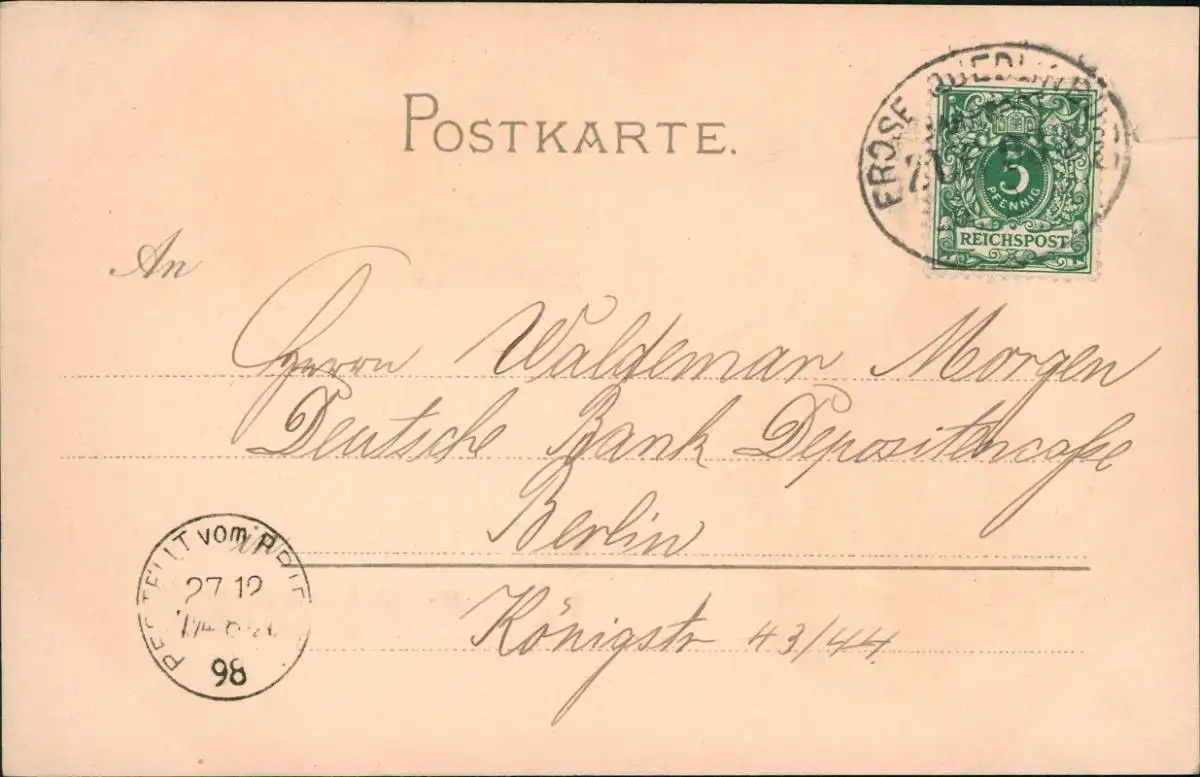 POSTKARTE.
FROSE QUEDLINBURG
5
PFENNIG
REICHSPOST
An
Herrn Waldeman Morgen
Deutsche Bank Depositencaſse
in Berlin
Königstr 43/44.
BESTELLT vom
27.12
98